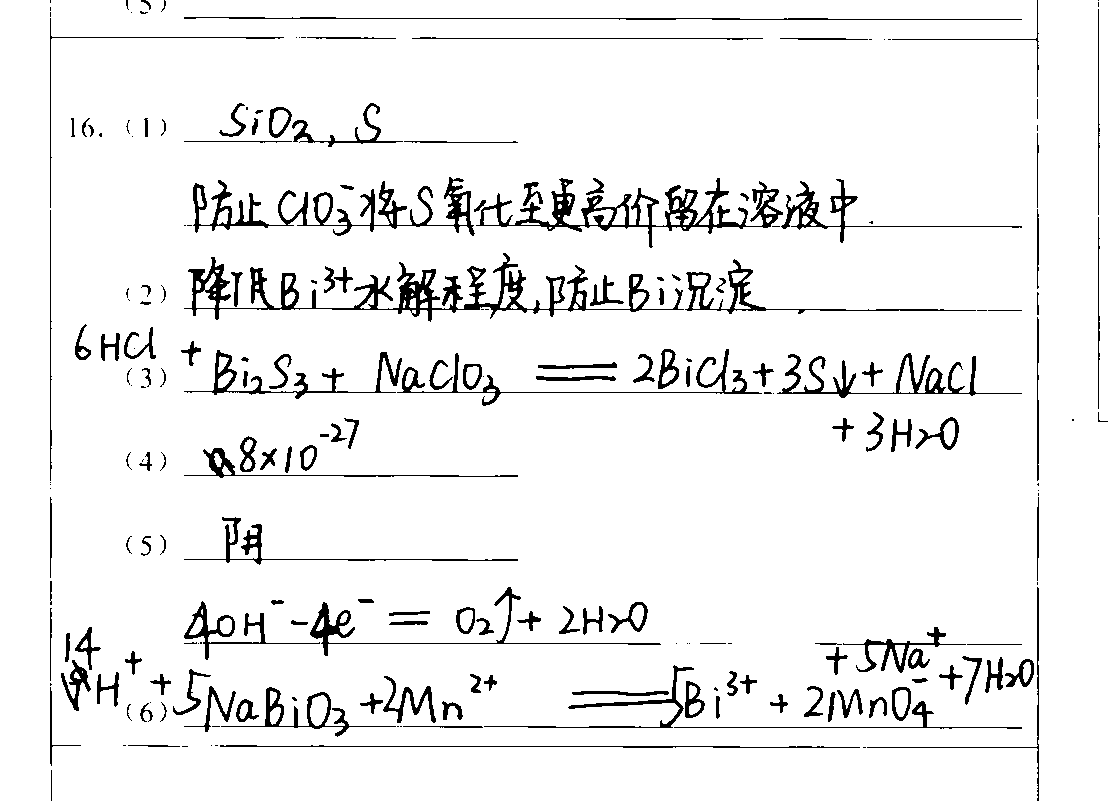 (5)
16. (1) SiO₂, S
防止ClO₃⁻将S氧化至更高价留在溶液中.
(2) 降低Bi³⁺水解程度,防止Bi沉淀.
(3) 6HCl + Bi₂S₃ + NaClO₃ == 2BiCl₃ + 3S↓ + NaCl
+ 3H₂O
(4) 8×10⁻²⁷
(5) 阴
4OH⁻ - 4e⁻ = O₂↑ + 2H₂O
(6) 14H⁺ + 5NaBiO₃ + 2Mn²⁺ == 5Bi³⁺ + 2MnO₄⁻ + 5Na⁺ + 7H₂O